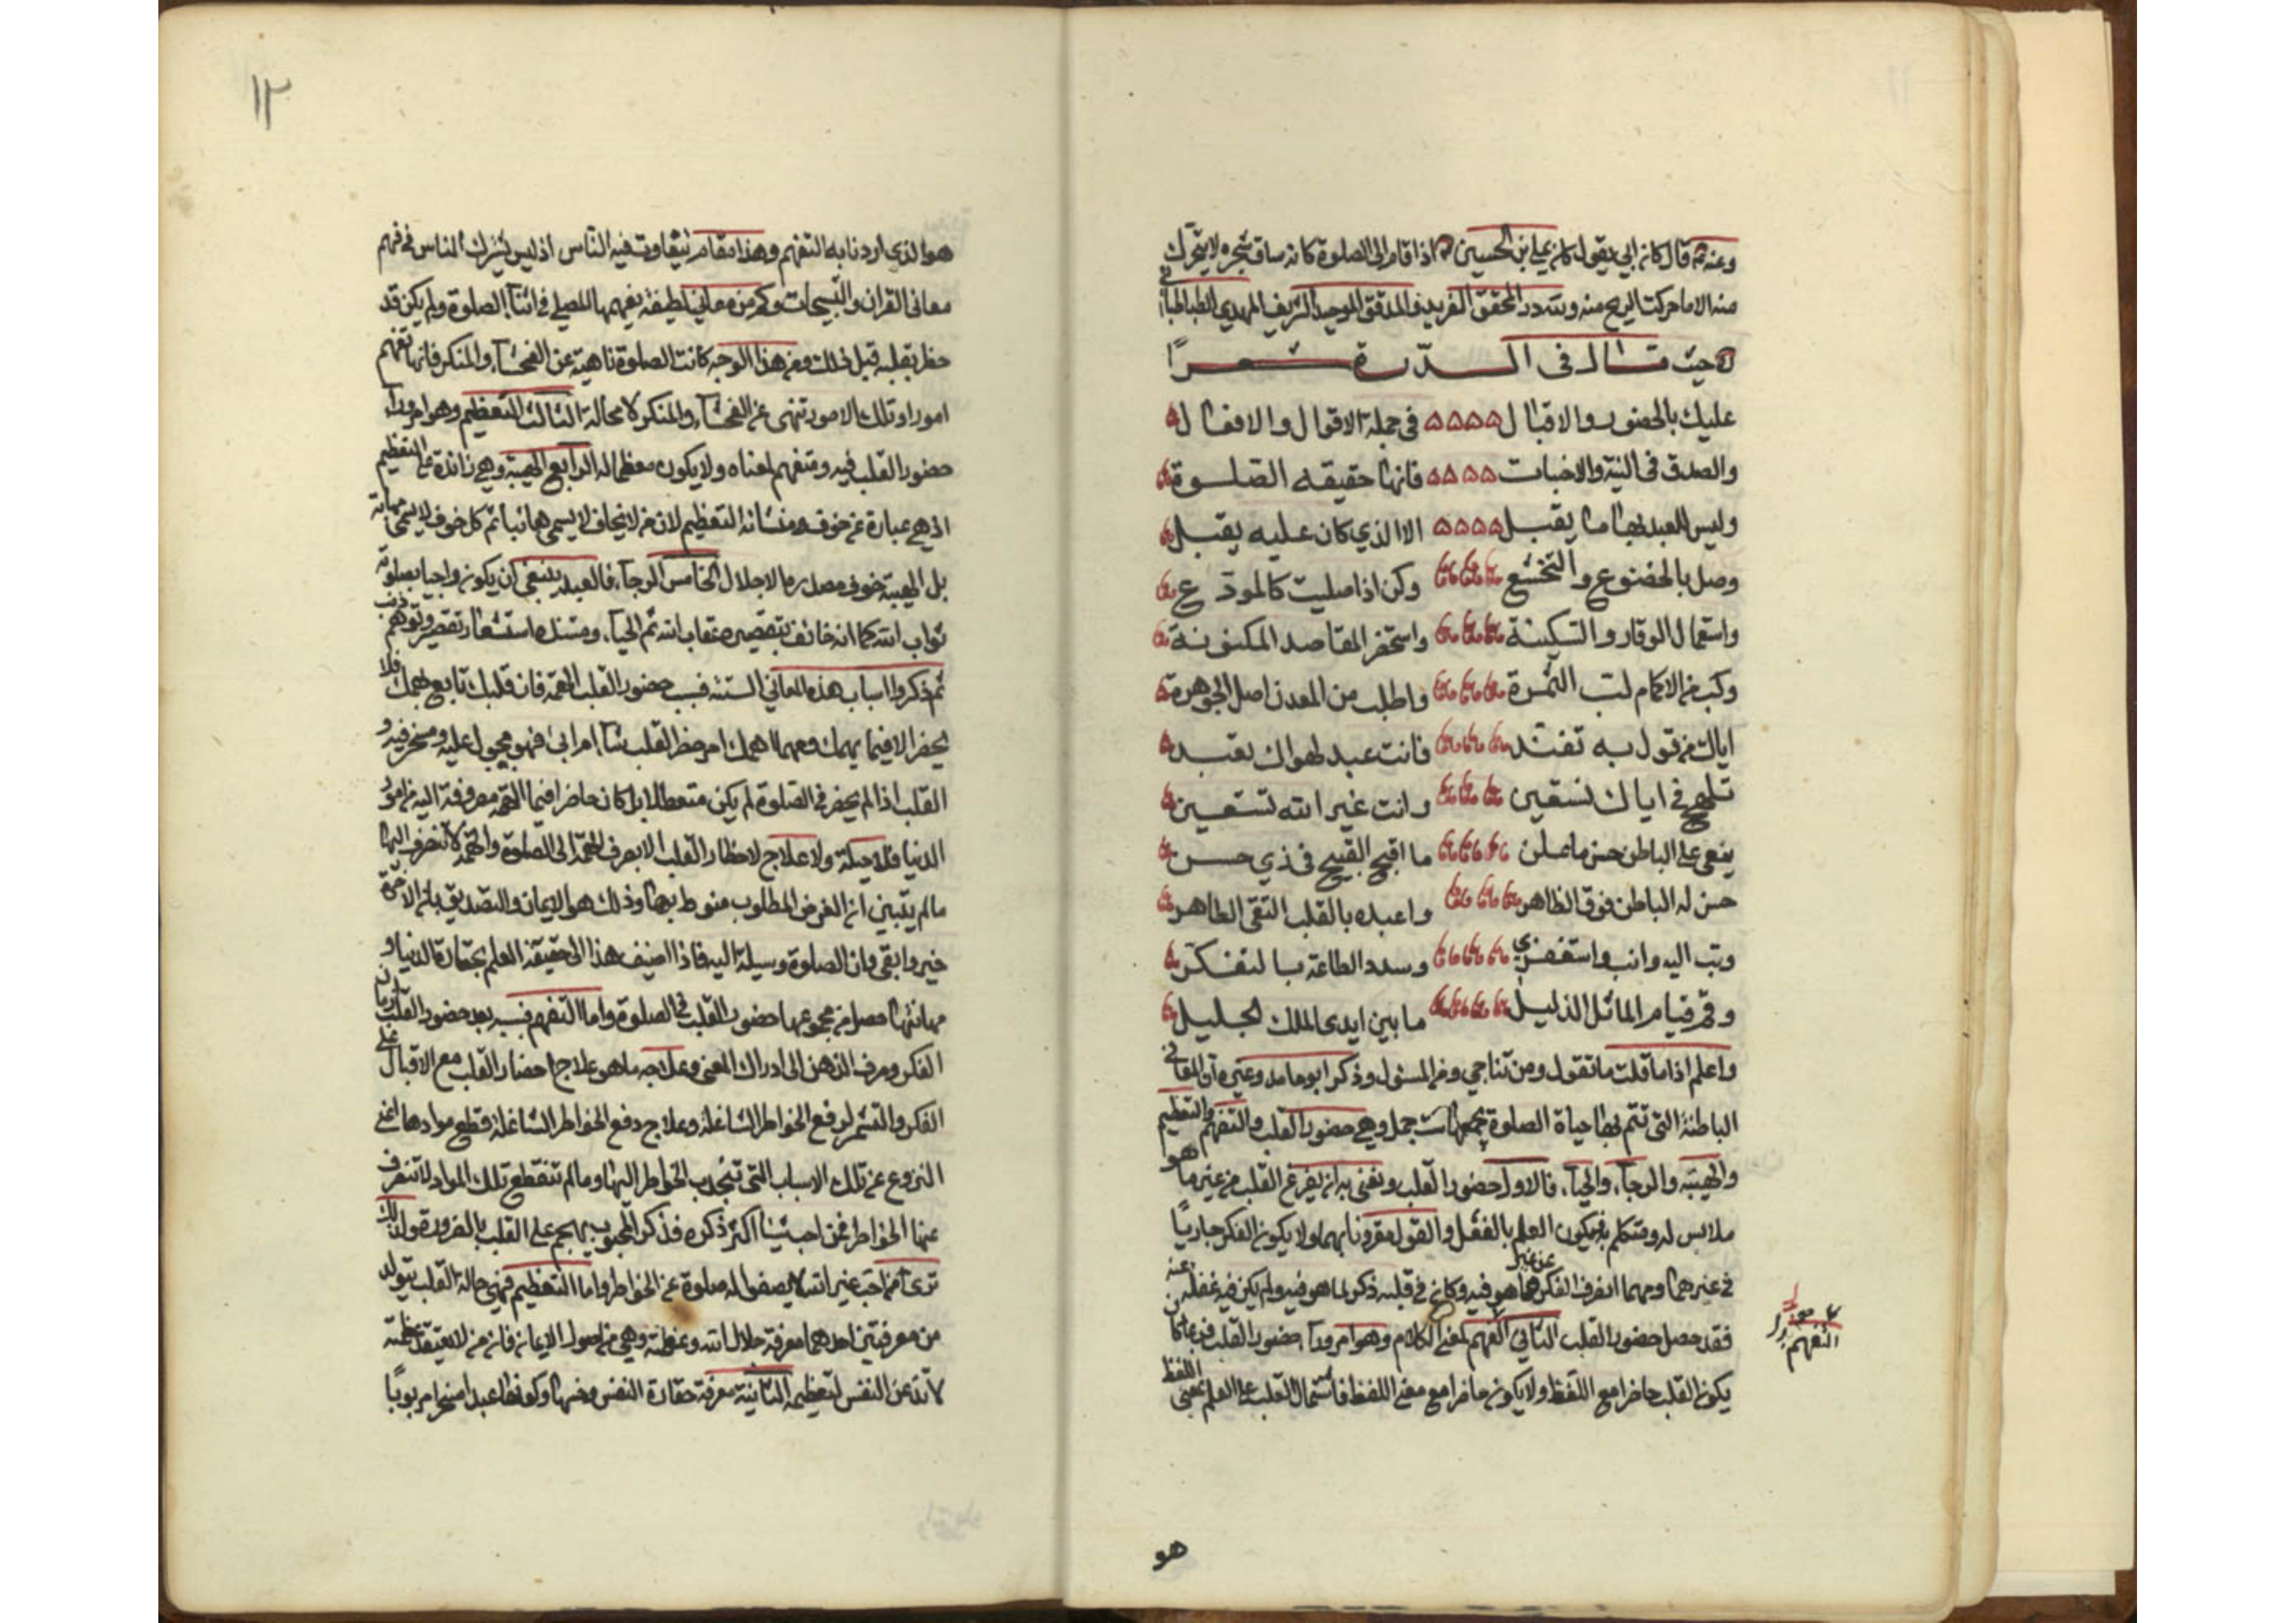 وعنه ع قال كان ابي يقول كان علي بن الحسين ع اذا قام الى الصلوة كانه ساق شجرة لا يتحرك
منه الا ما حركت الريح منه ولله در المحقق الفريد والمدقق الوحيد الشريف المهدي الطباطبائي
ره حيث قال في الدرة شعرًا
عليك بالحضور والاقبال في جملة الاقوال والافعال
والصدق في النية والاخبات فانها حقيقه الصلوة
وليس للعبد بها ما يقبل الا الذي كان عليه يقبل
وصل بالخضوع والتخشع وكن اذا صليت كالمودع
واستعمال الوقار والسكينة واستحضر المقاصد المكنونة
وكب من الاكمام لب الثمرة واطلب من المعدن اصل الجوهرة
اياك من قول به تفند فانت عبد لهواك تعبد
تلهج في اياك نستعين وانت غير الله تستعين
ينعى على الباطن حسن ما علن ما اقبح القبيح في ذي حسن
حسن له الباطن فوق الظاهر واعبده بالقلب التقي الطاهر
وتب اليه وانب واستغفري وسدد الطاعة بالتفكر
وقم قيام الماثل الذليل ما بين ايدى الملك الجليل
واعلم اذا ما قلت ما تقول ومن تناجي ومن المسئول وذكر ابو حامد وغيره ان المعاني
الباطنة التي تتم بها حياة الصلوة يجمعها ست جمل وهي حضور القلب والتفهم والتعظيم
والهيبة والرجآء والحيآء فالاول حضور القلب ونعني به ان يفرغ القلب من غير ما هو
ملابس له ومتكلم به فيكون العلم بالفعل والقول مقرونا بهما ولا يكون الفكر جاريًا
في غيرهما ومهما انصرف الفكر عن غير ما هو فيه وكان في قلبه ذكر لما هو فيه ولم يكن فيه غفلة عنه
فقد حصل حضور القلب الثاني الفهم لمعنى الكلام وهو امر ورآء حضور القلب فربما كان
يكون القلب حاضرا مع اللفظ ولا يكون حاضرا مع معنى اللفظ فاشتمال القلب على العلم بمعنى اللفظ
التفهم
هو
١٢
هو الذي اردنا به التفهم وهذا مقام يتفاوت فيه الناس اذ ليس يشترك الناس في فهم
معانى القران والتسبيحات وكم من معاني لطيفة يفهمها المصلي في اثنآء الصلوة ولم يكن قد
خطر بقلبه قبل ذلك ومن هذا الوجه كانت الصلوة ناهية عن الفحشآء والمنكر فانها تفهم
امورا وتلك الامور تنهى عن الفحشآء والمنكر لا محالة الثالث التعظيم وهو امر ورآء
حضور القلب فيه ومتفهم لمعناه ولا يكون معظما له الرابع الهيبة وهي زائدة على التعظيم
اذ هي عبارة عن خوف منشائه التعظيم لان من لا يخاف لا يسمى هائبا ثم كل خوف لا يسمى مهابة
بل الهيبة خوف مصدرها الاجلال الخامس الرجآء فالعبد ينبغي ان يكون راجيا بصلوته
ثواب الله كما انه خائف بتقصيره عقاب الله ثم الحيآء ومستنده استشعار تقصير وتوهم ذنب
ثم ذكروا اسباب هذه المعاني الستة فسبب حضور القلب الهمة فان قلبك تابع لهمك فلا
يحضر الا فيما يهمك ومهما اهمك امر حضر القلب شآء ام ابى فهو مجبول عليه ومسخر فيه و
القلب اذا لم يحضر في الصلوة لم يكن متعطلا بل كان حاضرا فيما الهمة مصروفة اليه من امور
الدنيا فلا حيلة ولا علاج لاحظار القلب الا بصرف الهمة الى الصلوة والهمة لا تنصرف اليها
ما لم يتبين ان الغرض المطلوب منوط بها وذلك هو الايمان والتصديق بان الاخرة
خير وابقى وان الصلوة وسيلة اليه فاذا اضيف هذا الى حقيقة العلم بحقارة الدنيا و
مهانتها حصل من مجموعها حضور القلب في الصلوة واما التفهم فسببه بعد حضور القلب ادمان
الفكر وصرف الذهن الى ادراك المعنى وعلاجه ما هو علاج احضار القلب مع الاقبال على
الفكر والتشمر لرفع الخواطر الشاغلة وعلاج دفع الخواطر الشاغلة قطع موادها اعني
النزوع عن تلك الاسباب التي تنجذب الخواطر اليها وما لم تنقطع تلك المواد لا تنصرف
عنها الخواطر فمن احب شيئا اكثر ذكره فذكر المحبوب يهجم على القلب بالضرورة ولذلك
ترى من احب غير الله لا يصفو له صلوة عن الخواطر واما التعظيم فهي حالة القلب يتولد
من معرفتين احدهما معرفة جلال الله وعظمته وهي من اصول الايمان فان من لا يعتقد عظمته
لا تذعن النفس لتعظيمه الثانية معرفة حقارة النفس وخستها وكونها عبدا مسخرا مربوبًا